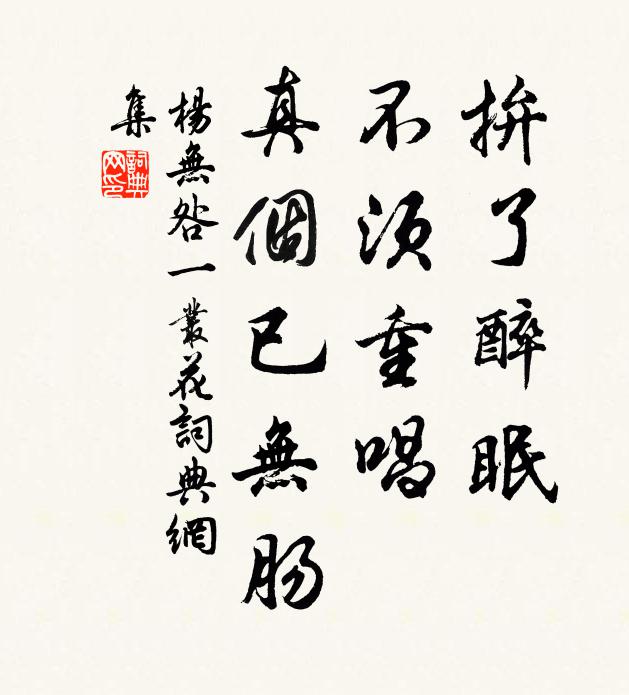 拚了醉眠
不須重唱
真個已無腸
楊無咎一叢花詞典網
集
詞典
网印